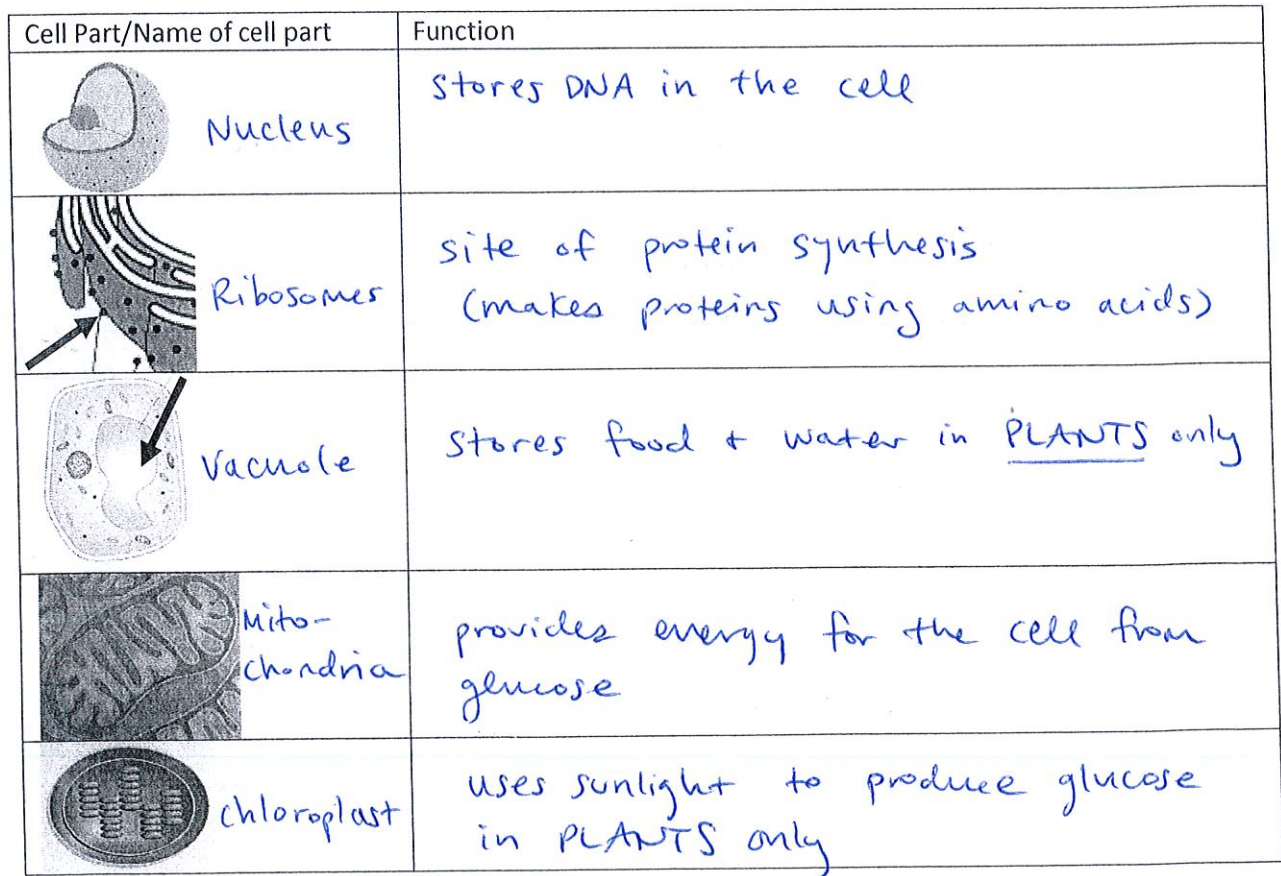 Cell Part/Name of cell part
Function
Nucleus
stores DNA in the cell
Ribosomes
site of protein synthesis
(makes proteins using amino acids)
Vacuole
stores food + water in PLANTS only
Mito-
chondria
provides energy for the cell from
glucose
chloroplast
uses sunlight to produce glucose
in PLANTS only